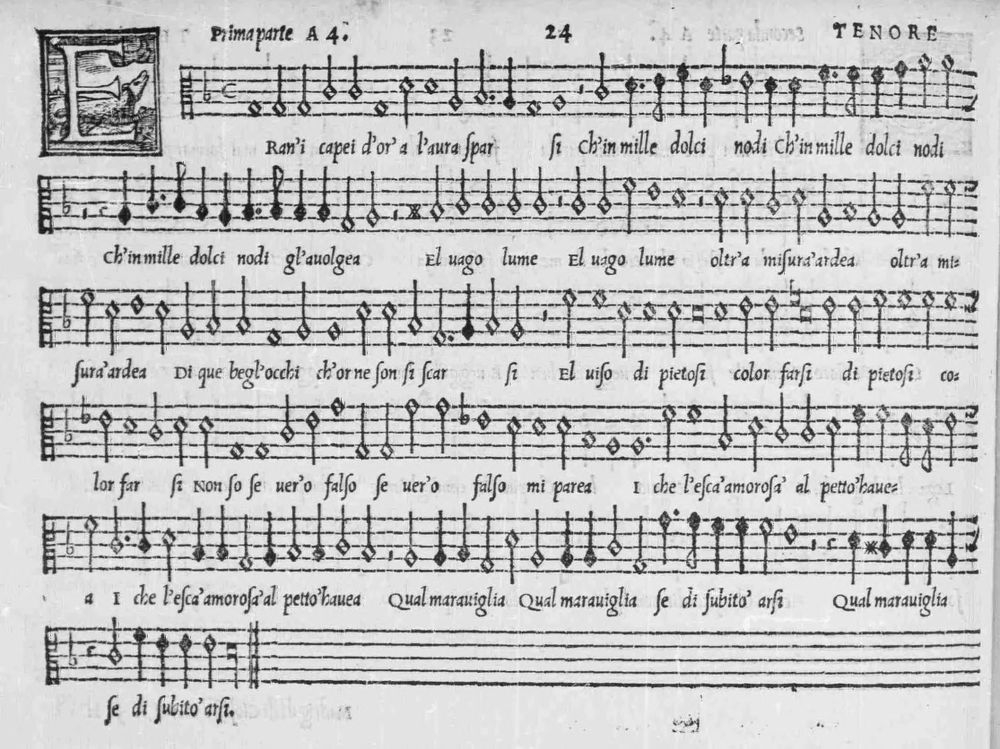 Prima parte A 4. 24 TENORE
ERan'i capei d'or'a l'aura spar si Ch'in mille dolci nodi Ch'in mille dolci nodi
Ch'in mille dolci nodi gl'auolgea El uago lume El uago lume oltr'a misura'ardea oltr'a mi-
sura'ardea Di que begl'occhi ch'or ne son si scar si El uiso di pietosi color farsi di pietosi co-
lor far si Non so se uer'o falso se uer'o falso mi parea I che l'esca'amorosa' al petto'hauе-
a I che l'esca'amorosa'al petto'hauea Qual marauiglia Qual marauiglia se di subito' arsi Qual marauiglia
se di subito' arsi.